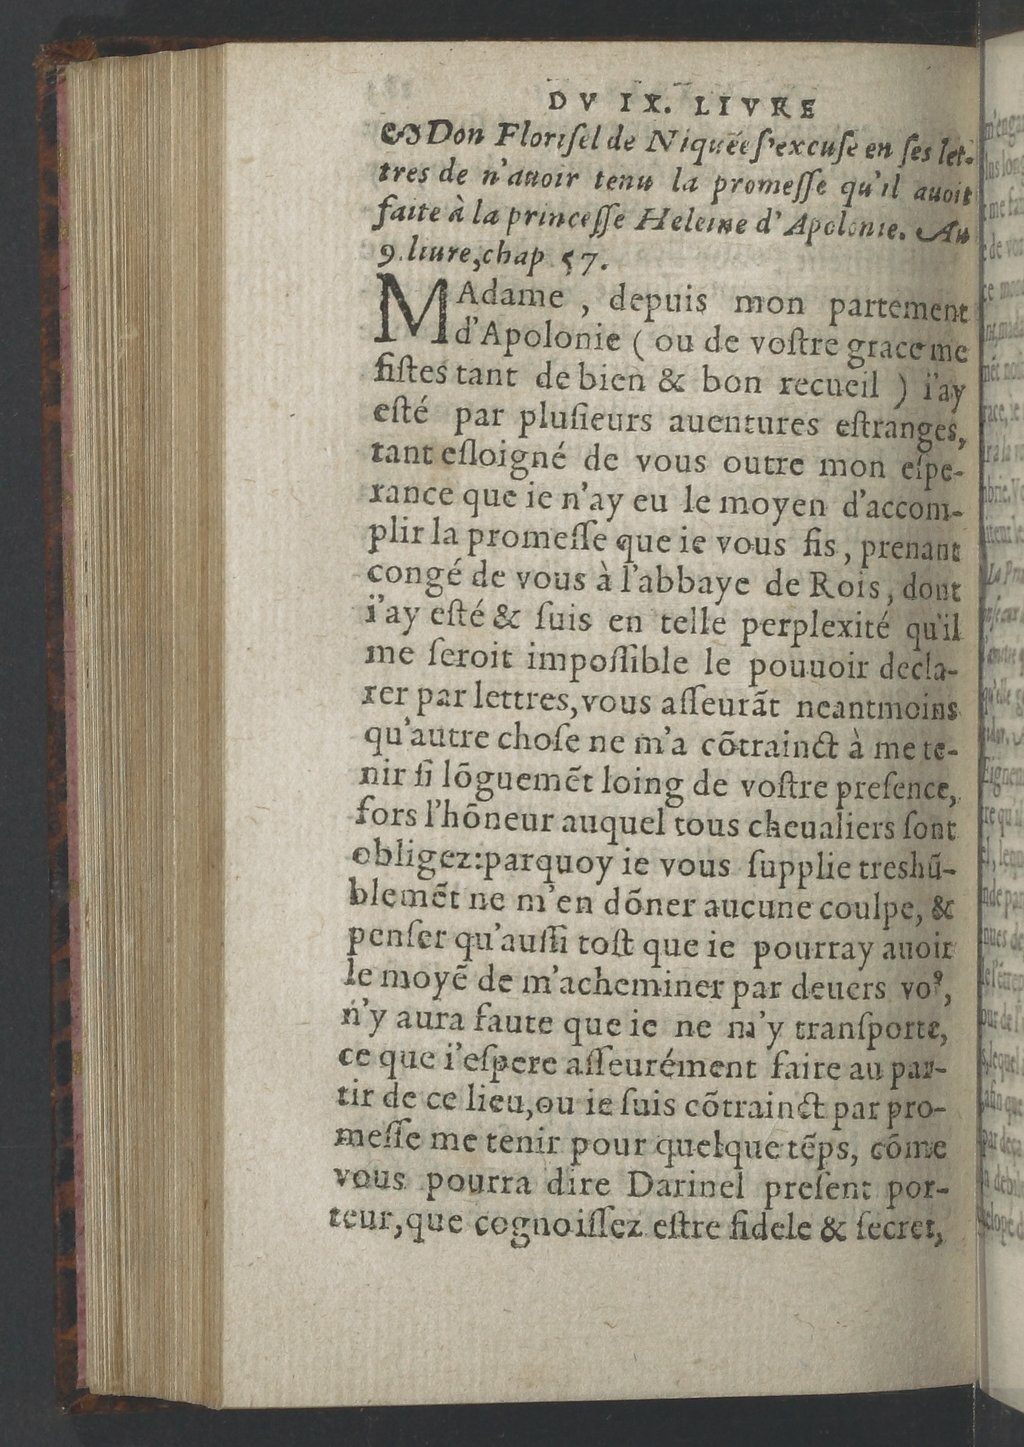 DV IX. LIVRE
Don Florisel de Niquée s'excuse en ses let-
tres de n'auoir tenu la promesse qu'il auoit
faite à la princesse Heleine d'Apolonie. Au
9. liure, chap 57.
MAdame, depuis mon partement
d'Apolonie (ou de voſtre grace me
fiſtes tant de bien & bon recueil) i'ay
eſté par pluſieurs auentures eſtranges,
tant eſloigné de vous outre mon eſpe-
rance que ie n'ay eu le moyen d'accom-
plir la promeſſe que ie vous fis, prenant
congé de vous à l'abbaye de Rois, dont
i'ay eſté & ſuis en telle perplexité qu'il
me ſeroit impoſſible le pouuoir decla-
rer par lettres, vous aſſeurãt neantmoins
qu'autre choſe ne m'a cõtrainct à me te-
nir ſi lõguemẽt loing de voſtre preſence,
fors l'hõneur auquel tous cheualiers ſont
obligez: parquoy ie vous ſupplie treshũ-
blemẽt ne m'en dõner aucune coulpe, &
penſer qu'auſſi toſt que ie pourray auoir
le moyẽ de m'acheminer par deuers voꝰ,
n'y aura faute que ie ne m'y tranſporte,
ce que i'eſpere aſſeurément faire au par-
tir de ce lieu, ou ie ſuis cõtrainct par pro-
meſſe me tenir pour quelque tẽps, cõme
vous pourra dire Darinel preſent por-
teur, que cognoiſſez eſtre fidele & ſecret,